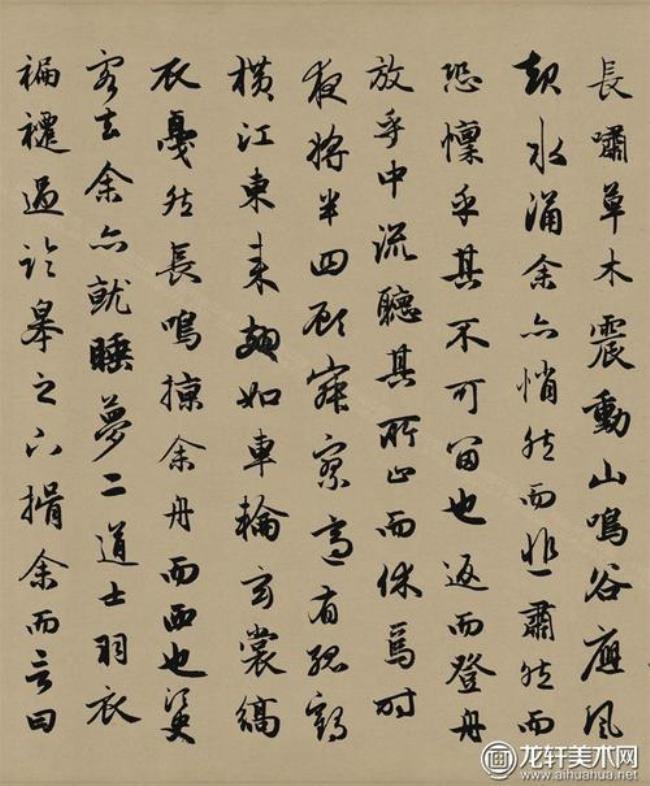 長嘯草木震動山鳴谷應風
起水涌余亦悄然而悲肅然而
恐懍乎其不可留也返而登舟
放乎中流聽其所止而休焉時
夜將半四顧寂寥適有孤鶴
橫江東來翅如車輪玄裳縞
衣戛然長鳴掠余舟而西也須臾
客去余亦就睡夢二道士羽衣
褊褼過臨皋之下揖余而言曰
龙轩美术网
www.aihuahua.net